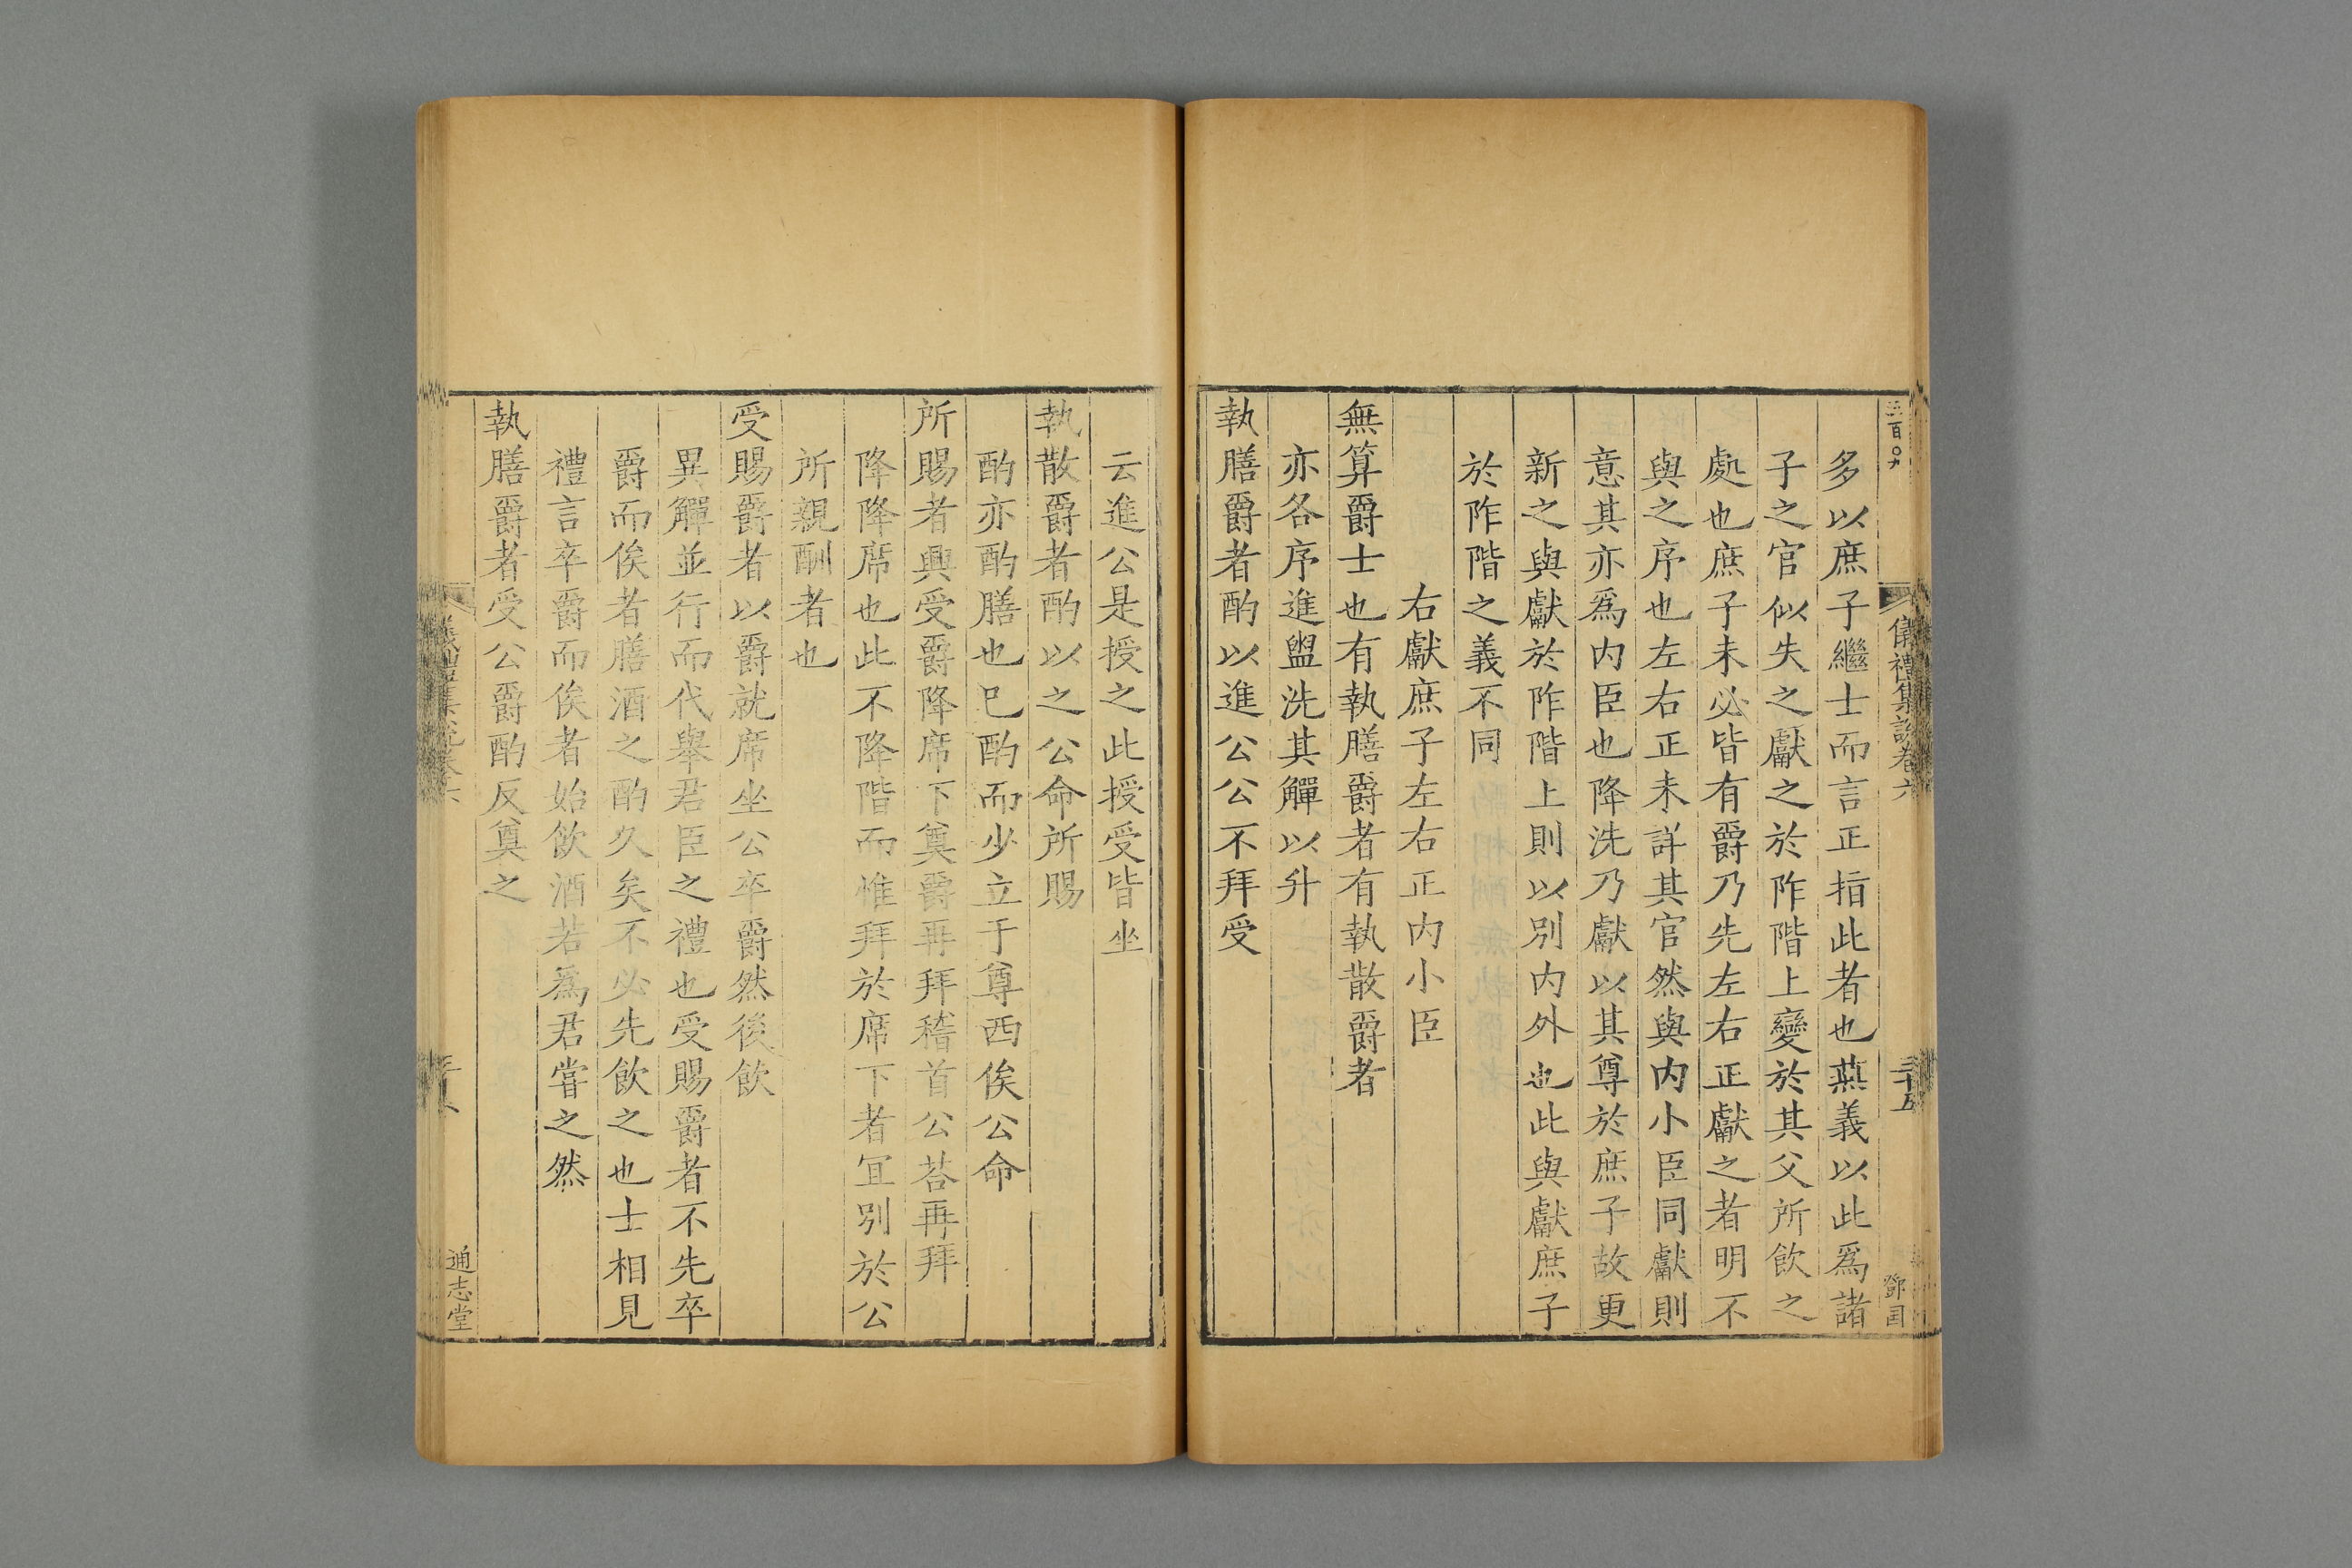 儀禮集說卷六
二十五
多以庶子繼士而言正指此者也燕義以此爲諸
子之官似失之獻之於阼階上變於其父所飲之
處也庶子未必皆有爵乃先左右正獻之者明不
與之序也左右正未詳其官然與內小臣同獻則
意其亦爲內臣也降洗乃獻以其尊於庶子故更
新之與獻於阼階上則以別內外也此與獻庶子
於阼階之義不同
右獻庶子左右正內小臣
無算爵士也有執膳爵者有執散爵者
亦各序進盥洗其觶以升
執膳爵者酌以進公公不拜受
云進公是授之此授受皆坐
執散爵者酌以之公命所賜
酌亦酌膳也已酌而少立于尊西俟公命
所賜者興受爵降席下奠爵再拜稽首公荅再拜
降降席也此不降階而惟拜於席下者宜別於公
所親酬者也
受賜爵者以爵就席坐公卒爵然後飲
異觶並行而代舉君臣之禮也受賜爵者不先卒
爵而俟者膳酒之酌久矣不必先飲之也士相見
禮言卒爵而俟者始飲酒若爲君嘗之然
執膳爵者受公爵酌反奠之
通志堂